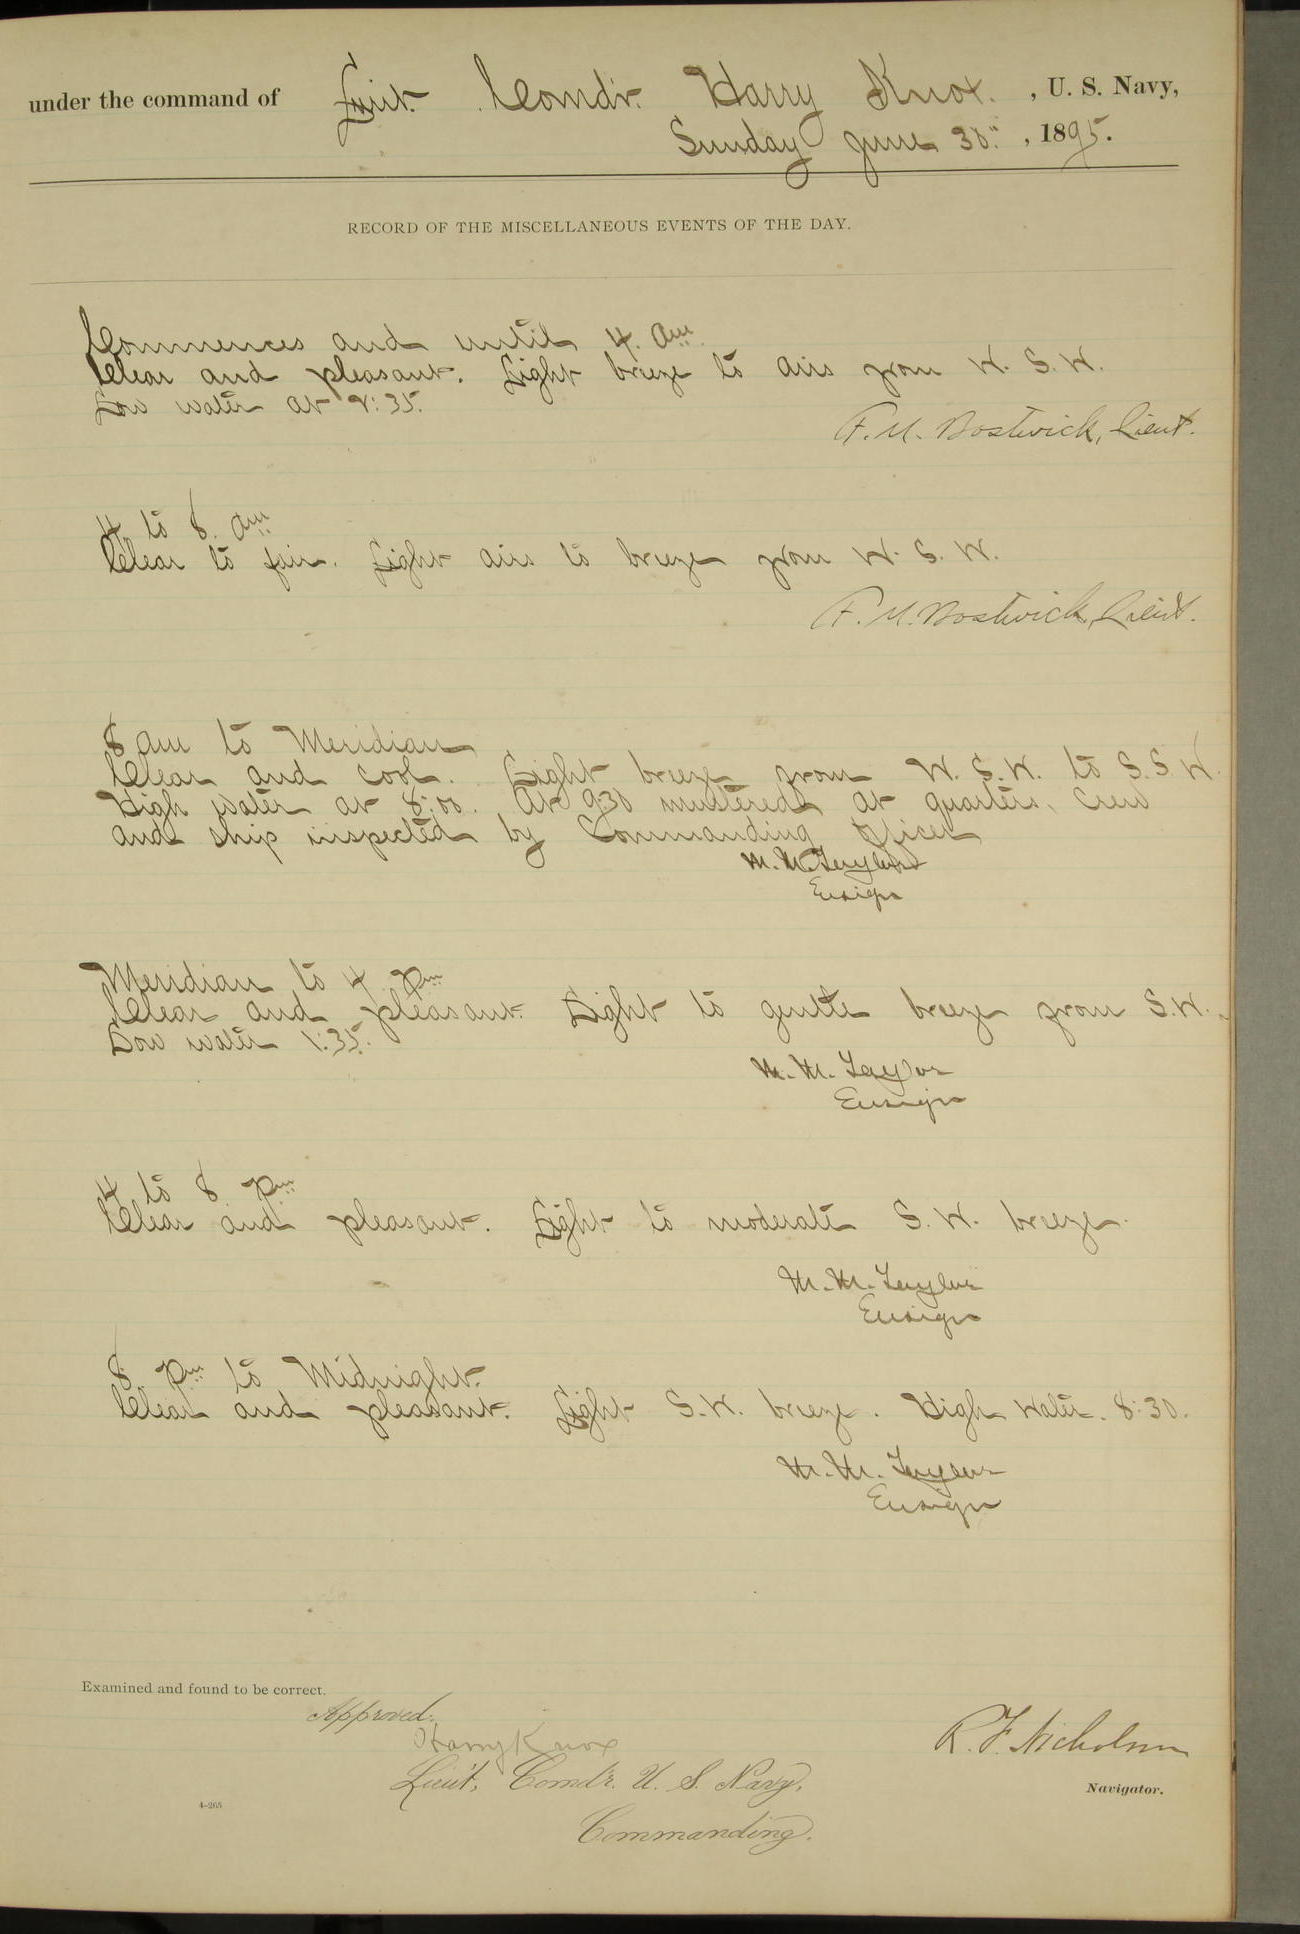 under the command of Lieut. Comdr. Harry Knox. , U. S. Navy,
Sunday June 30." , 1895.
RECORD OF THE MISCELLANEOUS EVENTS OF THE DAY.
Commences and until 4. am.
Clear and pleasant. Light breeze to airs from W. S. W.
Low water at :35.
F. M. Bostwick, Lieut.
4 to 8. am
Clear to fair. Light airs to breeze from W. S. W.
F. M. Bostwick, Lieut.
8 am to Meridian
Clear and cool. Light breeze from W. S. W. to S. S. W.
High water at 8:00. At 9:30 mustered at quarters, crew
and ship inspected by Commanding Officer
M. M. Taylor
Ensign
Meridian to 4 pm
Clear and pleasant. Light to gentle breeze from S.W.
Low water 1:35.
M. M. Taylor
Ensign
4 to 8 pm
Clear and pleasant. Light to moderate S. W. breeze.
M. M. Taylor
Ensign
8. pm to Midnight.
Clear and pleasant. Light S.W. breeze. High water. 8:30.
M. M. Taylor
Ensign
Examined and found to be correct.
Approved:
Harry Knox
R. F. Nicholson
Lieut. Comdr. U. S. Navy,
Navigator.
4-265
Commanding.